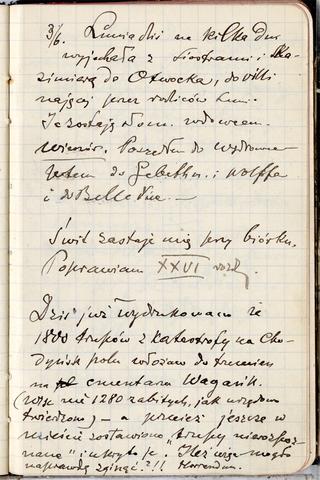 3/6. Lunia dziś na kilka dni
wyjechała z siostrami i Ka-
zimierą do Otwocka, do willi
najętej przez rodziców Luni.
Ja zostaję słom. wdowcem.
Wieczór. Poszedłem do
do Gebethn. i Wolffa
i do
Świt zastaje mię przy biórku.
Poprawiam XXVI rozdz.
Dziś już wydrukowano że
1800 trupów z katastrofy na Cho-
dyńsk. polu włożono do trumien
na cmentarzu Wagańk.
(więc nie 1280 zabitych, jak urzędow.
twierdzono) — a przecież jeszcze w
mieście zostawiono „trupy nierozpoz-
nane" i ukryto je. Ileż więc mogło
naprawdę zginąć?!! Horrendum.